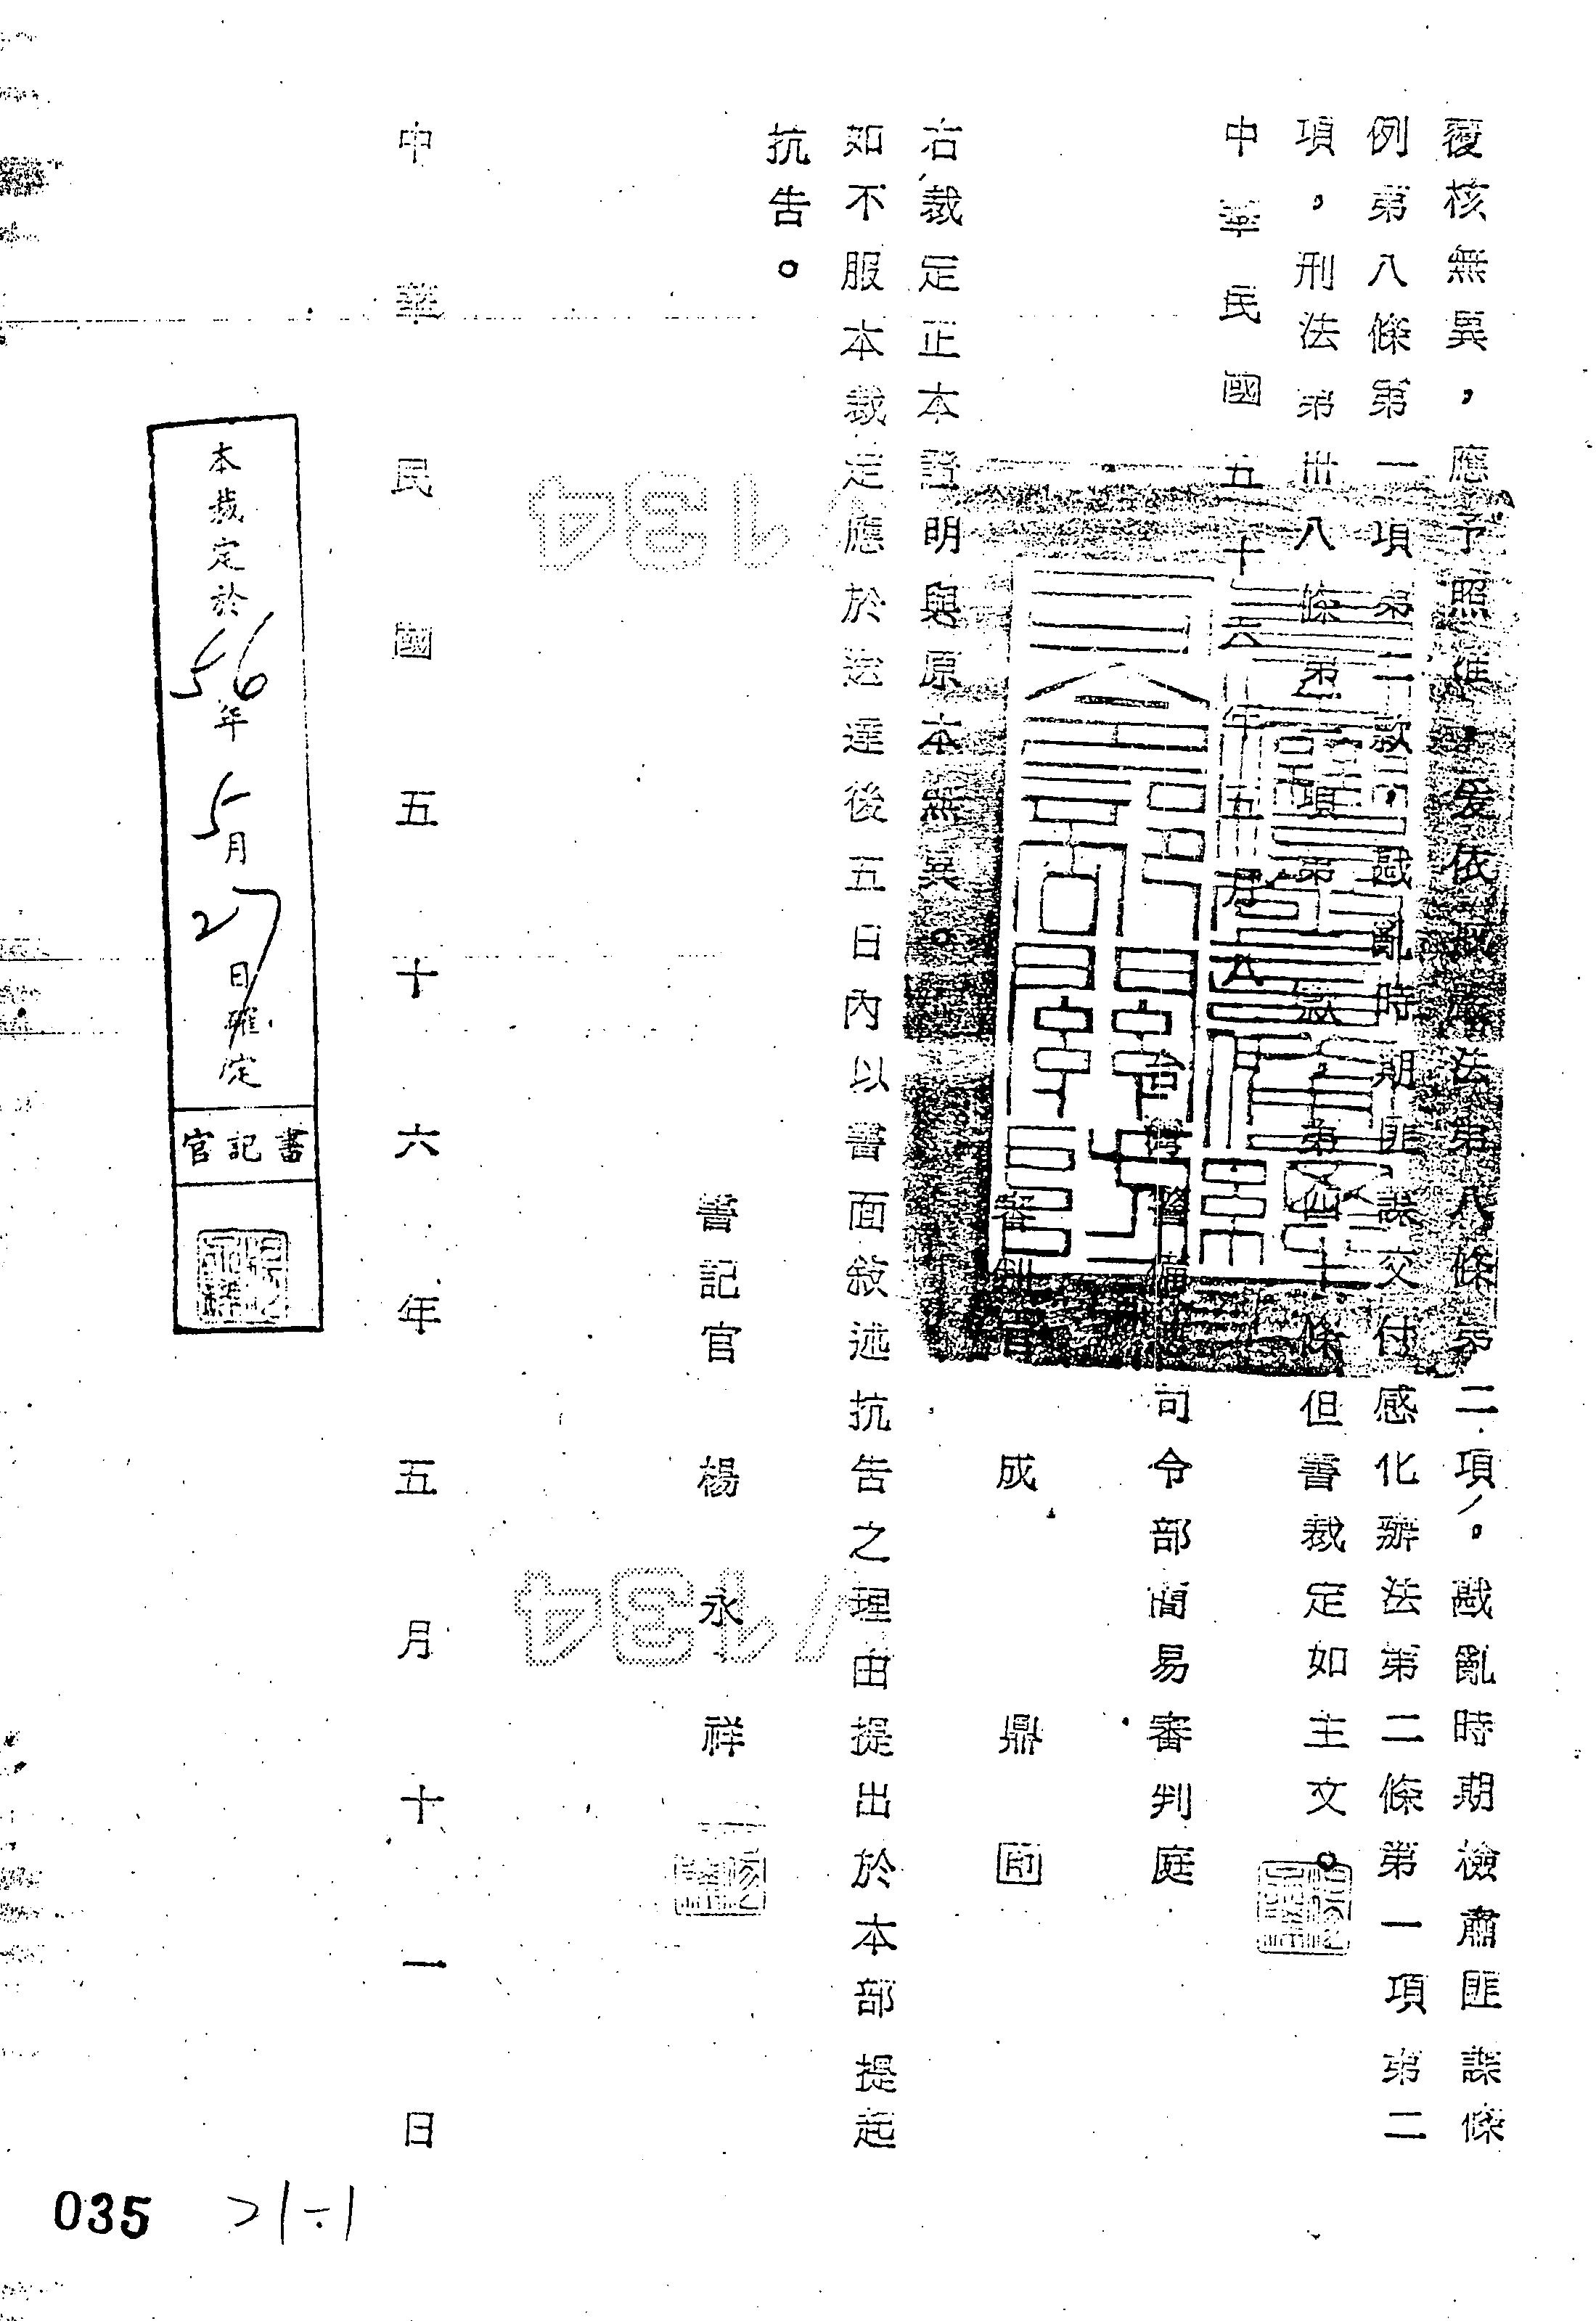 覆核無異，應予照准，爰依戒嚴法第八條第二項。戡亂時期檢肅匪諜條
例第八條第一項第二款，戡亂時期匪諜交付感化辦法第二條第一項第二
項，刑法第卅八條第一項第二款，第四十條但書裁定如主文。
中華民國五十六年五月八日
台灣警備總司令部簡易審判庭
審判官 成鼎 印
右裁定正本證明與原本無異。
如不服本裁定應於送達後五日內以書面敘述抗告之理由提出於本部提起
抗告。
書記官 楊永祥
中華民國五十六年五月十一日
本裁定於56年5月27日確定
書記官
035
134
134